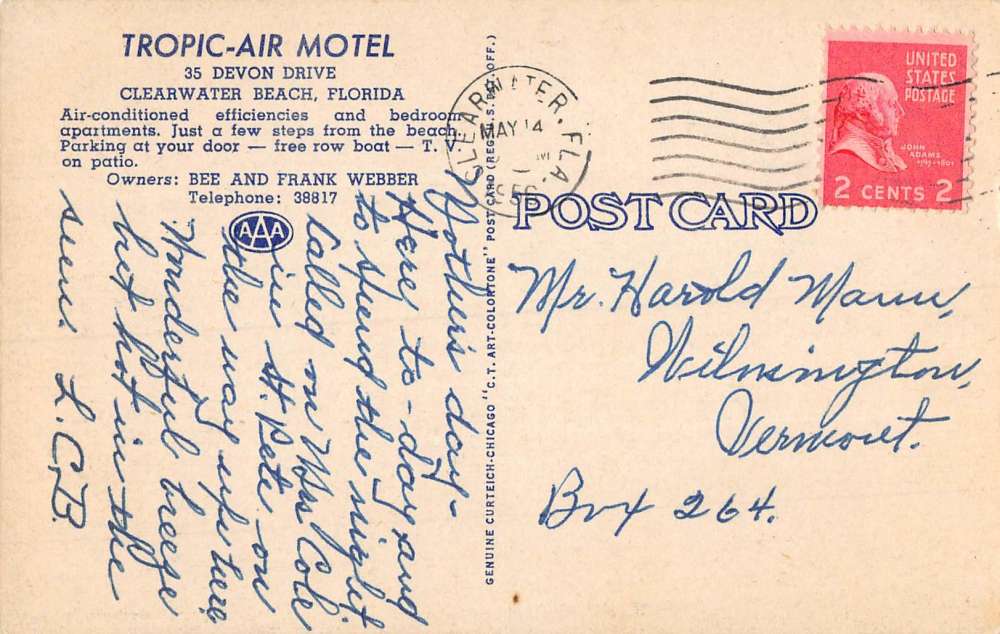 TROPIC-AIR MOTEL
35 DEVON DRIVE
CLEARWATER BEACH, FLORIDA
Air-conditioned efficiencies and bedroom
apartments. Just a few steps from the beach.
Parking at your door — free row boat — T. V.
on patio.
Owners: BEE AND FRANK WEBBER
Telephone: 38817
AAA
Mothers day-
Here to-day and
to spend the night
Called on Mrs Cole
in St. Pete on
the way up here
Wonderful breeze
but hot in the
sun. L.C.B.
GENUINE CURTEICH-CHICAGO "C.T. ART-COLORTONE" POST CARD (REG. U.S. PAT. OFF.)
CLEARWATER, FLA.
MAY 14
1956
UNITED
STATES
POSTAGE
JOHN
ADAMS
1797-1801
2 CENTS 2
POST CARD
Mr. Harold Mann,
Wilmington,
Vermont.
Box 264.